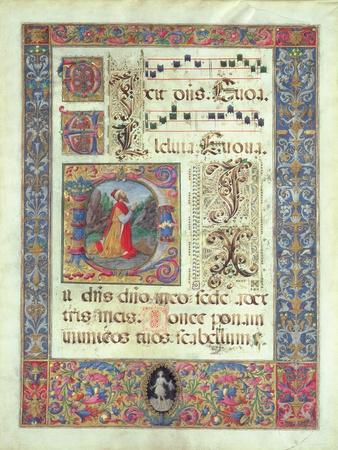 Dixit dñs. Euoa.
Alleluia. Euoua.
Dixit
dñs dño meo sede a dext
tris meis. Donec ponam
inimicos tuos, scabellum